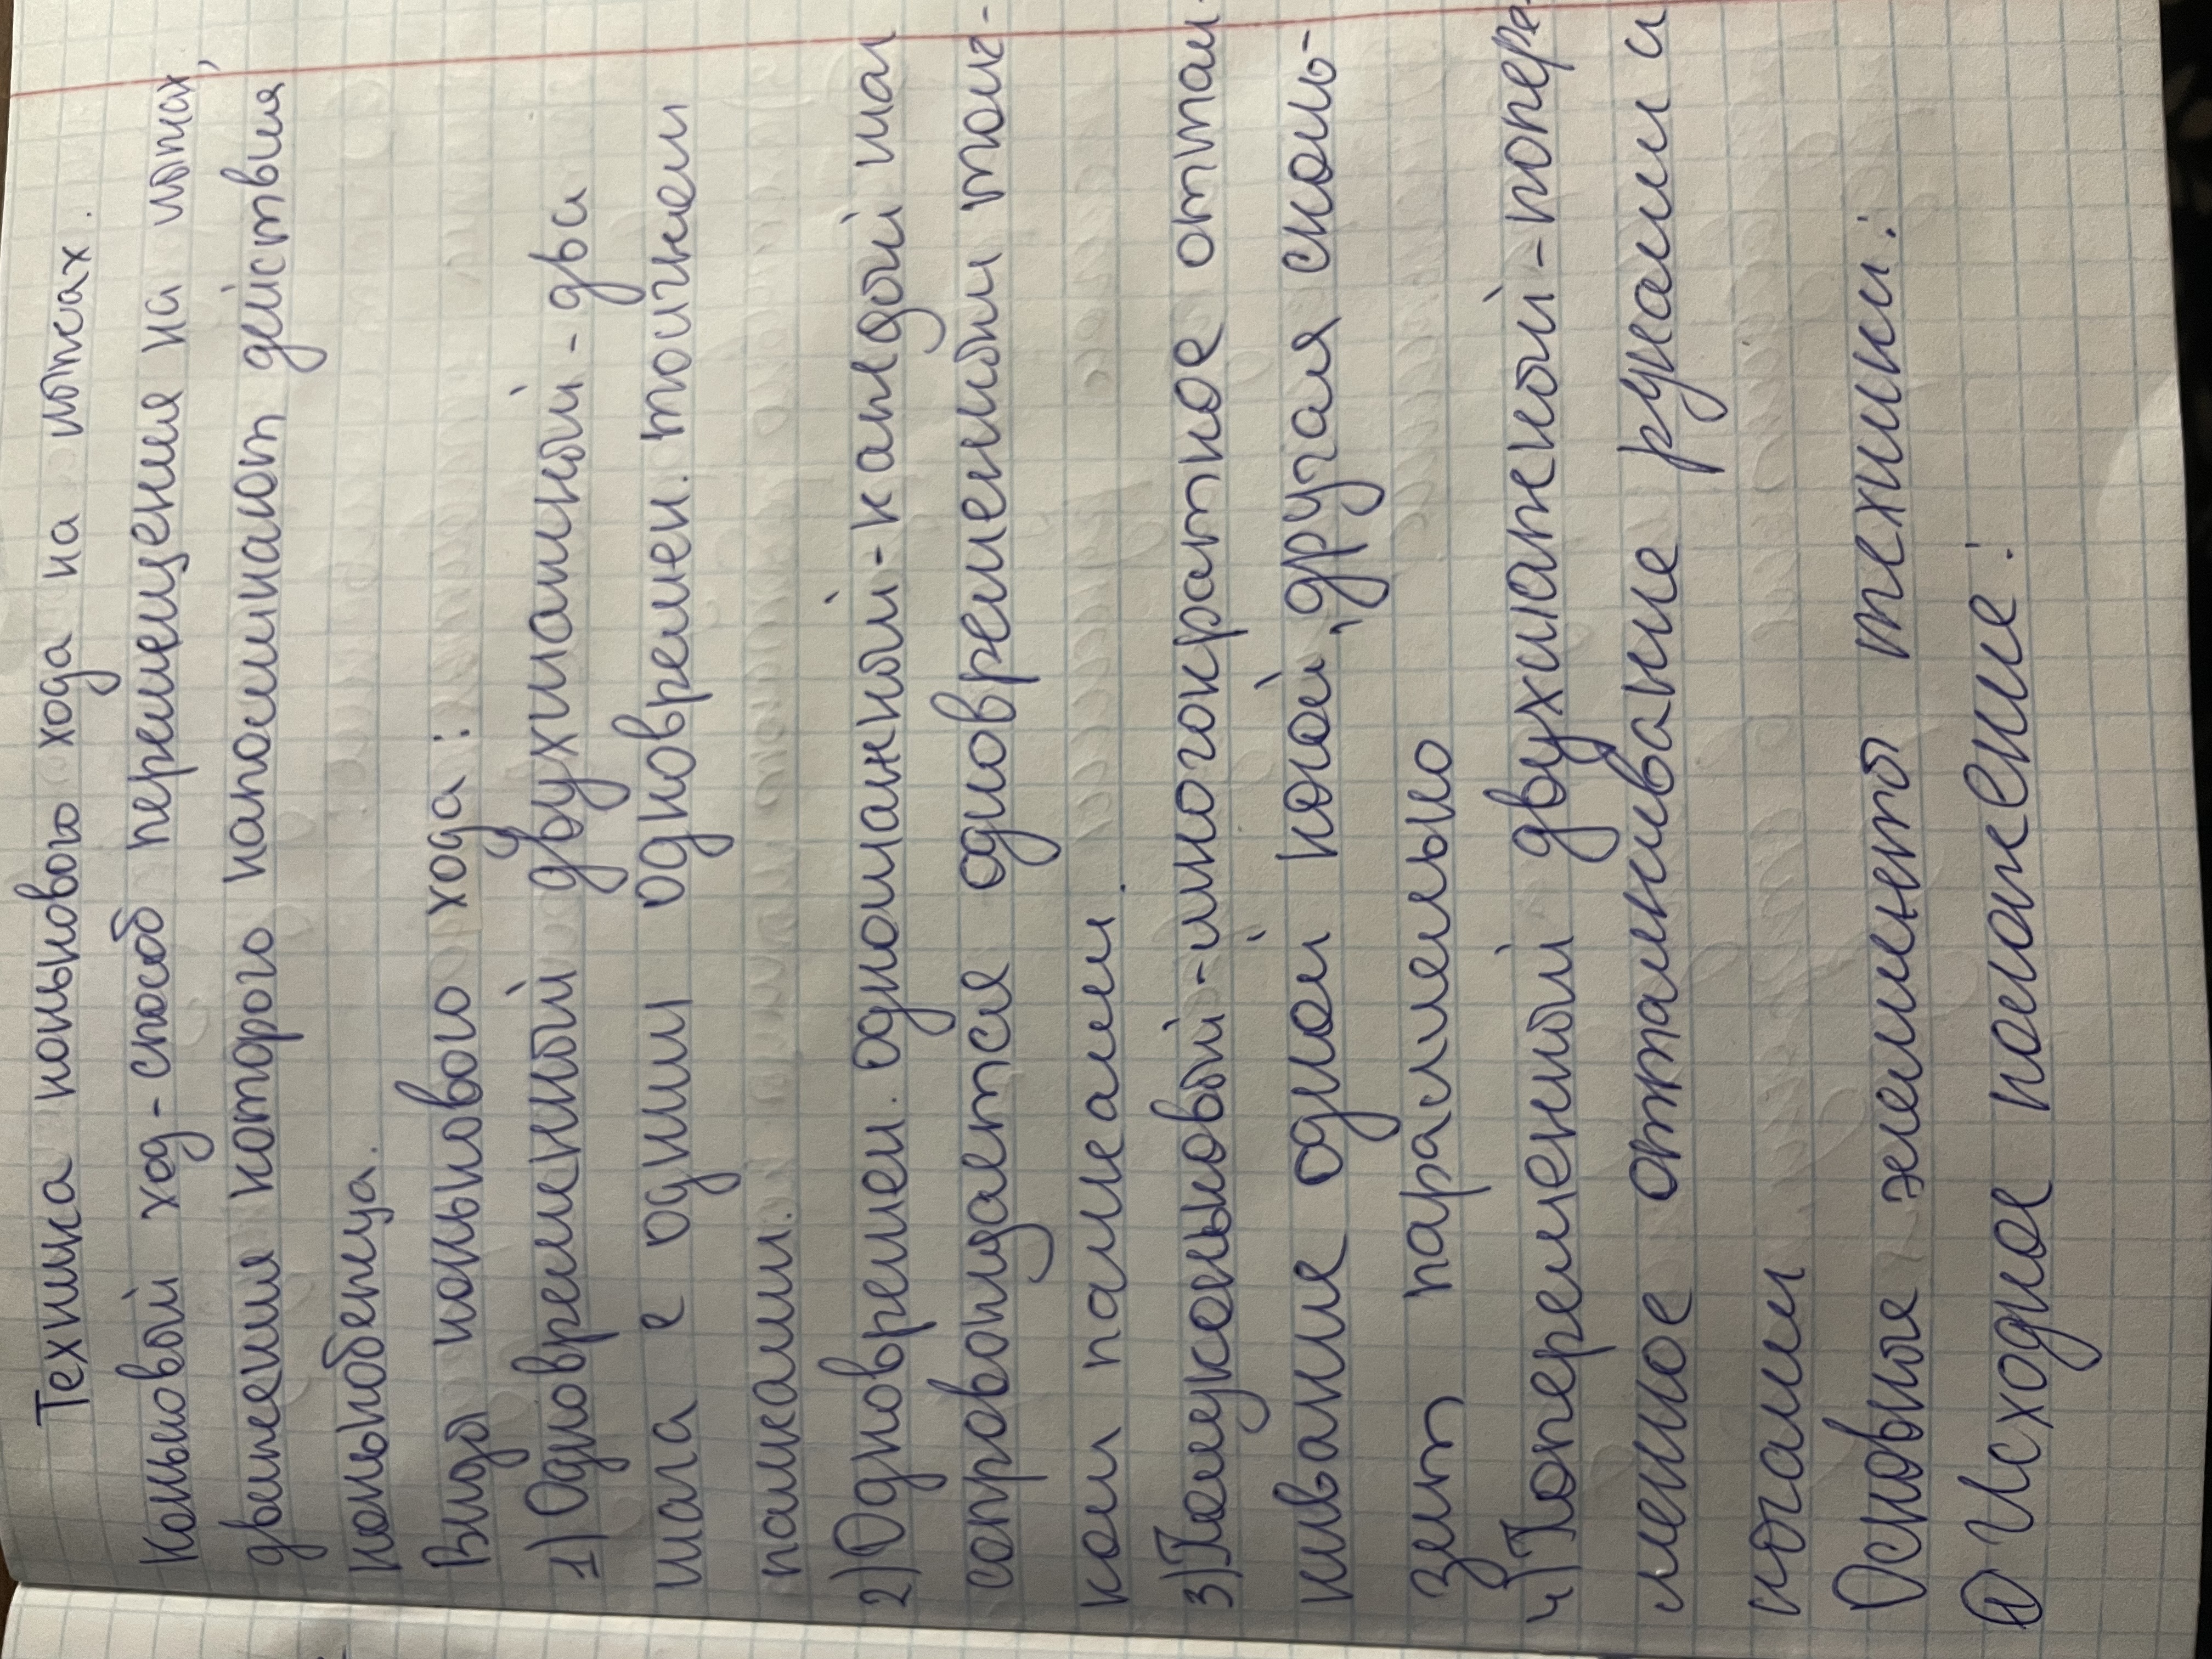 Техника конькового хода на лыжах.
Коньковый ход - способ перемещения на лыжах,
движения которого напоминают действия
конькобежца.
Виды конькового хода:
1) Одновременный двухшажный - два
шага с одним одновремен. толчком
палками.
2) Одновремен. одношажный - каждый шаг
сопровождается одновременным толч-
ком палками.
3) Полуконьковый - многократное оттал-
кивание одной ногой, другая сколь-
зит параллельно
4) Попеременный двухшажный - попере-
менное отталкивание руками и
ногами
Основные элементы техники:
1) Исходное положение: